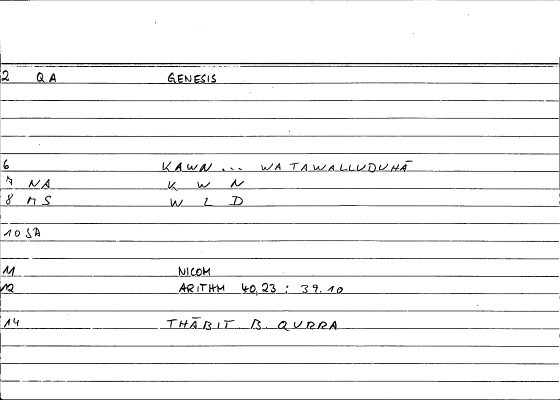 2 QA GENESIS
6 KAWN ... WA TAWALLUDUHĀ
7 NA K W N
8 MS W L D
10 SA
11 NICOM
12 ARITHM 40,23 : 39.10
14 THĀBIT B. QURRA